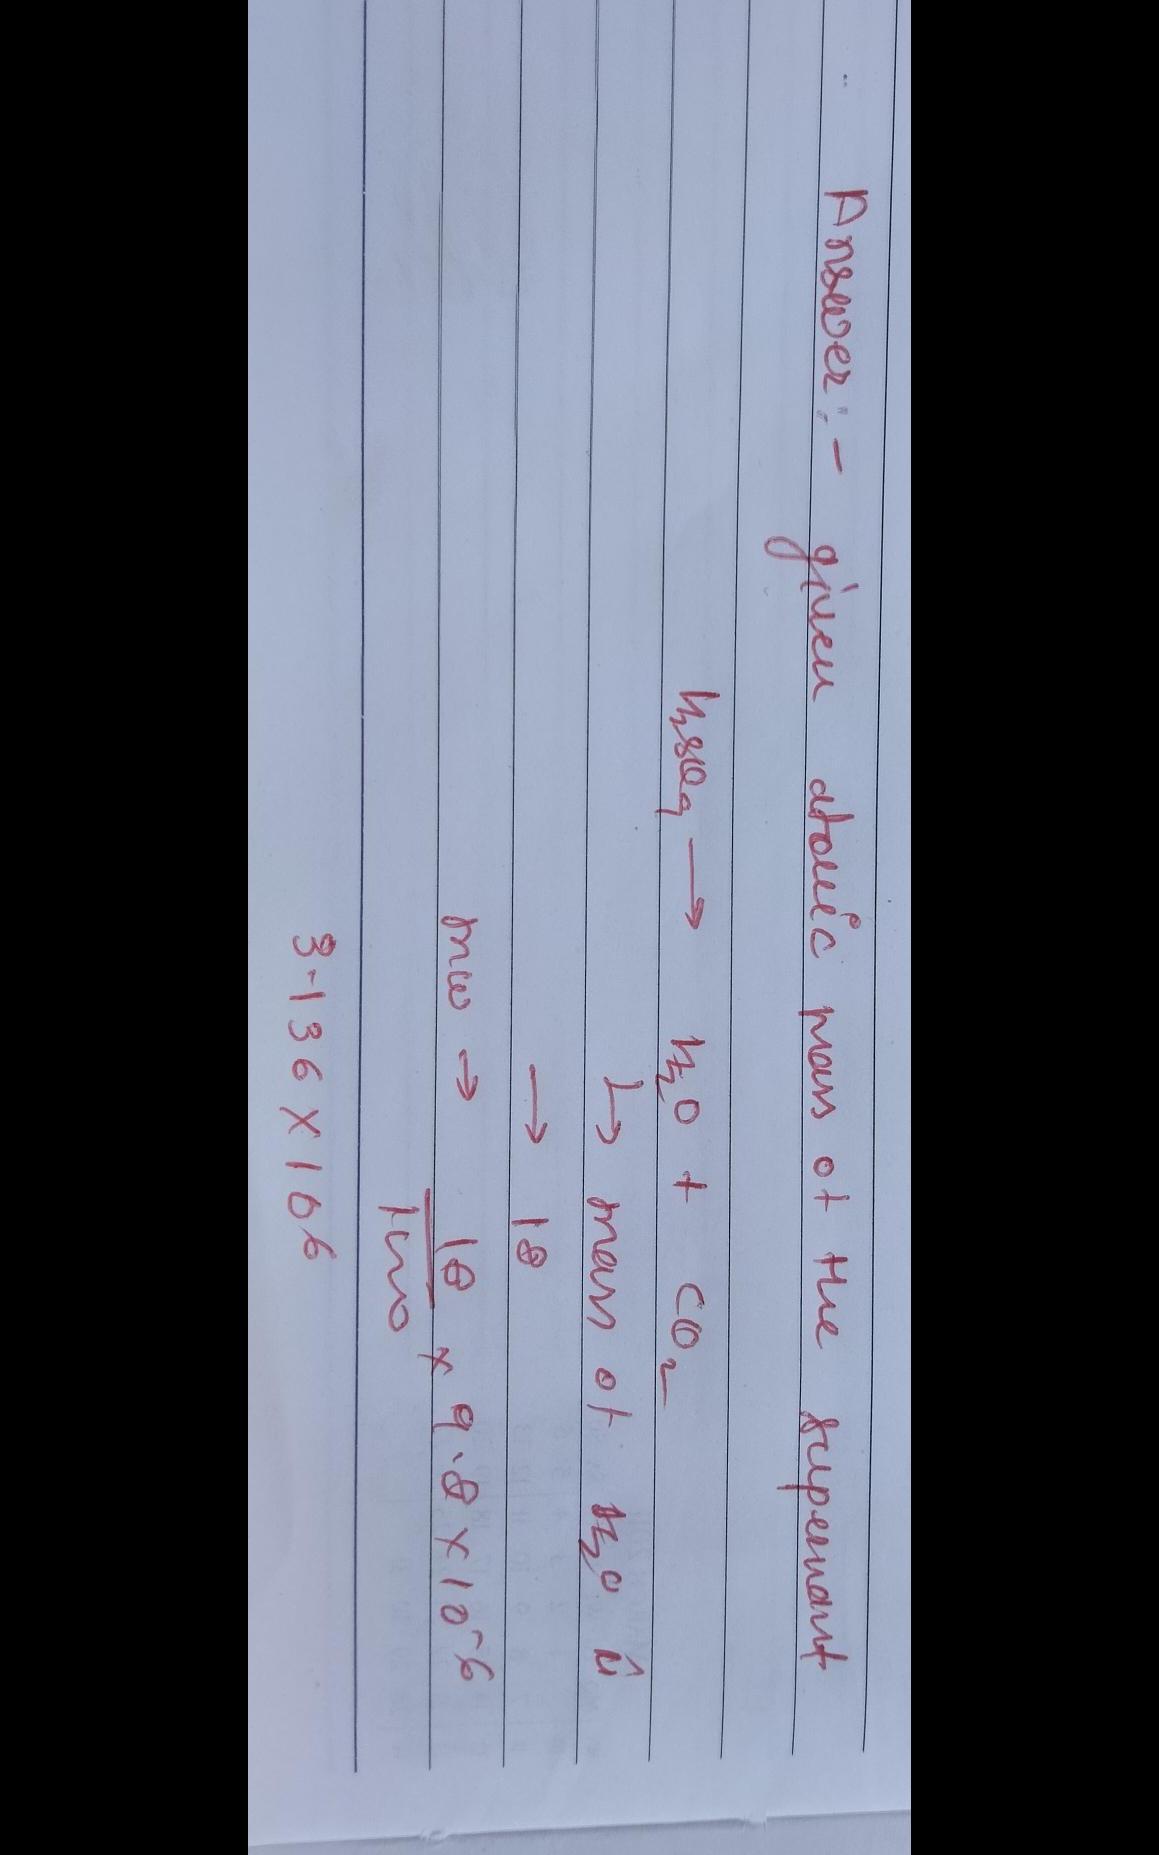 Answer:- given atomic mass of the supernant
H2SO4 → H2O + CO2
↳ mass of H2O is
→ 18
mw → 18 × 9.8 × 10^-6
3.136 × 106